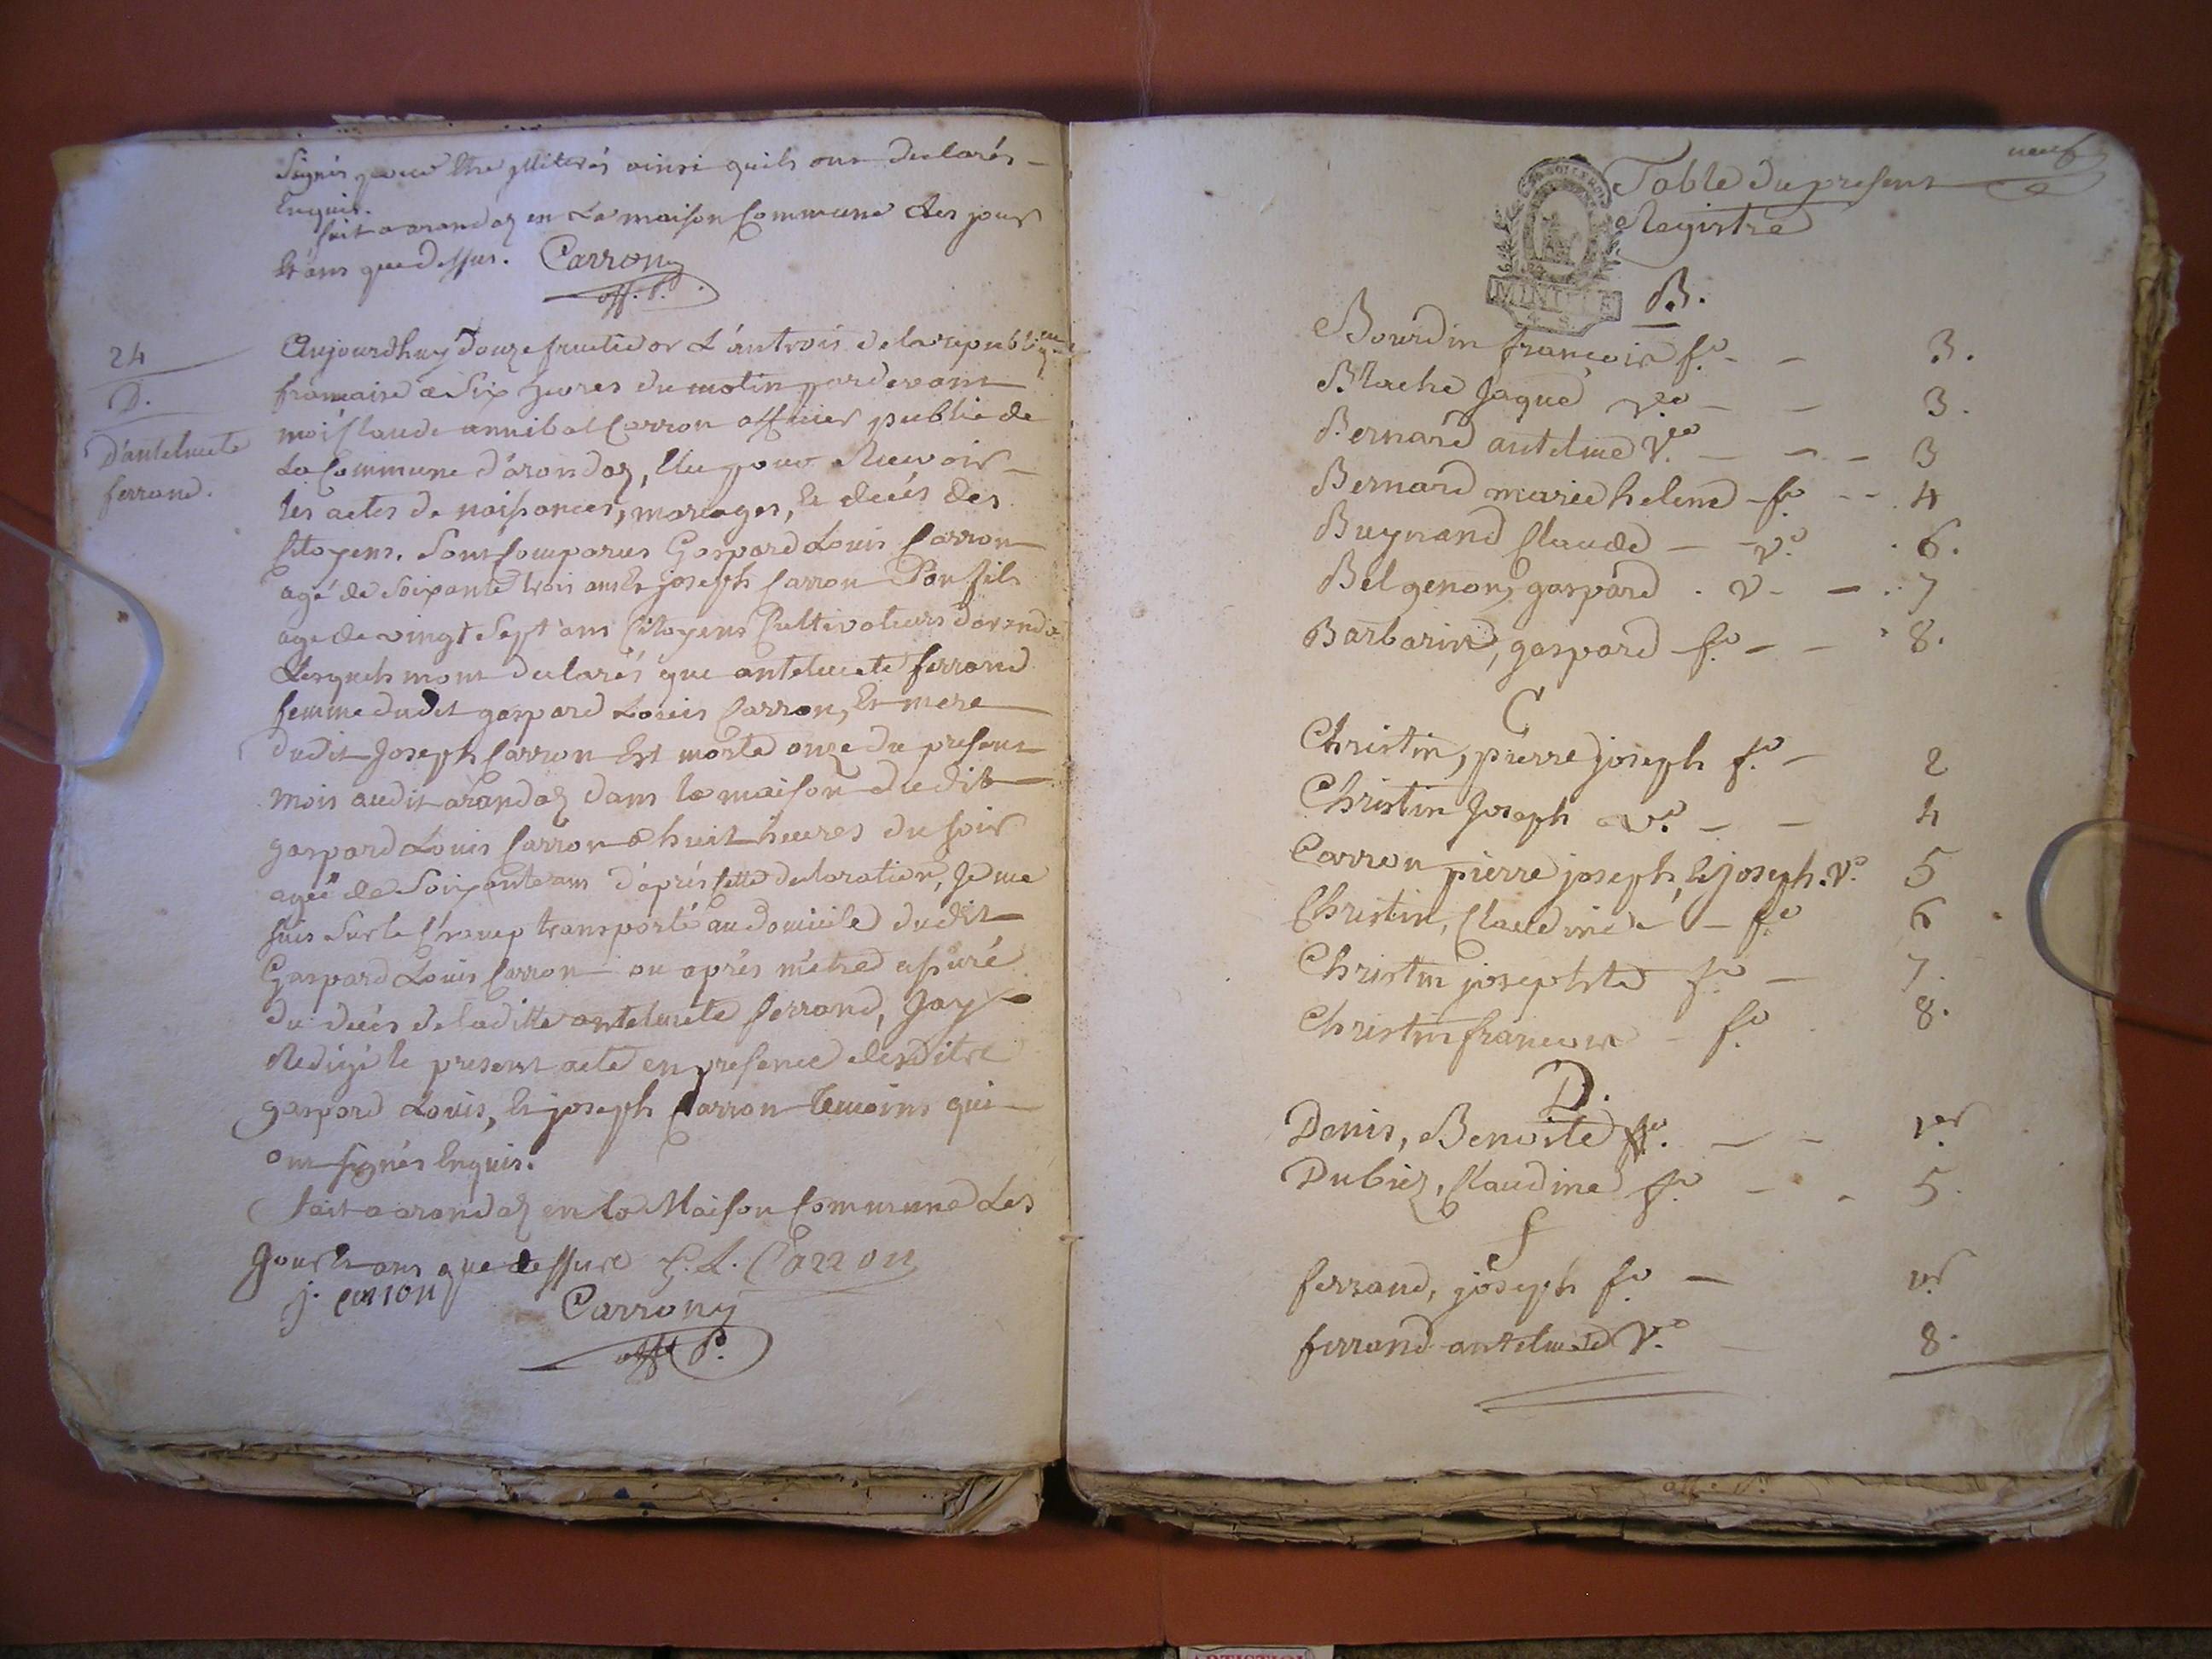 Signés pour être illiterés ainsi quils ont declarés
Enquis.
fait a arandaz en La maison Commune Les jour
Et ans que dessus. Carron
off. P.
24
D.
D'antelmete
ferrand.
Aujourdhuy douze fructidor L'an trois de la republique
francaise a Six heures du matin pardevant
moi Claude annibal Carron officier public de
La Commune d'arandaz, Elu pour Recevoir
les actes de naissances, mariages, et décés des
Citoyens. Sont Comparus Gaspard Louis Carron
agé de soixante trois ans Et joseph Carron Son fils
agé de vingt Sept ans Citoyens Cultivateurs d'arandaz
Lesquels mont declarés que antelmete ferrand
femme dudit gaspard Louis Carron, Et mere
dudit Joseph Carron Est morte onze du present
mois audit arandaz dans la maison dudit
gaspard Louis Carron a huit heures du soir
agée de Soixante ans d'après cette declaration, Je me
suis sur le Champ transporté au domicile dudit
Gaspard Louis Carron ou après m'etre assuré
du décés de laditte antelmete ferrand, Jay
Redigé le present acte en presence desdits
gaspard Louis, Et joseph Carron temoins qui
ont signés Enquis.
fait a arandaz en la Maison Commune Les
Jour Et ans que dessus G. L. Carron
j. carron
Carron
offr P.
neuf
Table du present
Registre
MINUTE
B.
Bourdin francois fo. - - 3.
Blache Jaque vo. - - 3.
Bernard antelme Vo. - - - 3
Bernard marie helene - fo. - - 4
Buynand Claude - - vo. . 6.
Belgenon, gaspard . v - - . 7
Barbarin, gaspard fo. - - 8.
C
Christin, pierre joseph fo. - 2
Christin Joseph vo. - - 4
Carron pierre joseph, Et joseph. Vo. 5
Christin, Claudine - - fo. 6
Christin josephte fo. - 7.
Christin francois - fo. 8.
D.
Denis, Benoite fo. - - 1er
Dubiez, Claudine fo. - - 5.
f
ferrand, joseph fo. - 1er
ferrand antelmete Vo. 8.